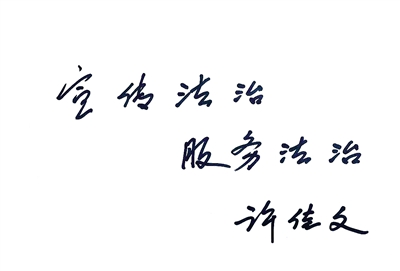 宣传法治
服务法治
许佳文